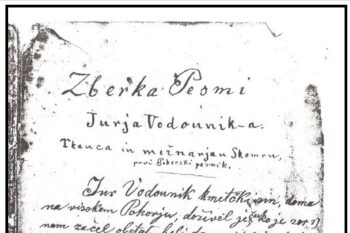 Zberka Pesmi
Jurja Vodounik-a.
Tkauca in mežnarja u Skomru,
prvi Pohorski pesnik.
Jur Vodounik kmetčki sin, doma
na visokem Pohorju, doživel je
nam začel